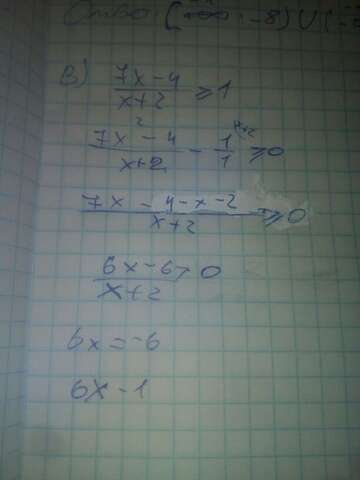 Ответ (-8) U (-
в) 7x-4 / x+2 ≥ 1
7x-4 / x+2 - 1 / 1 ≥ 0
7x - 4-x-2 / x+2 ≥ 0
6x-6 / x+2 > 0
6x = -6
6x - 1